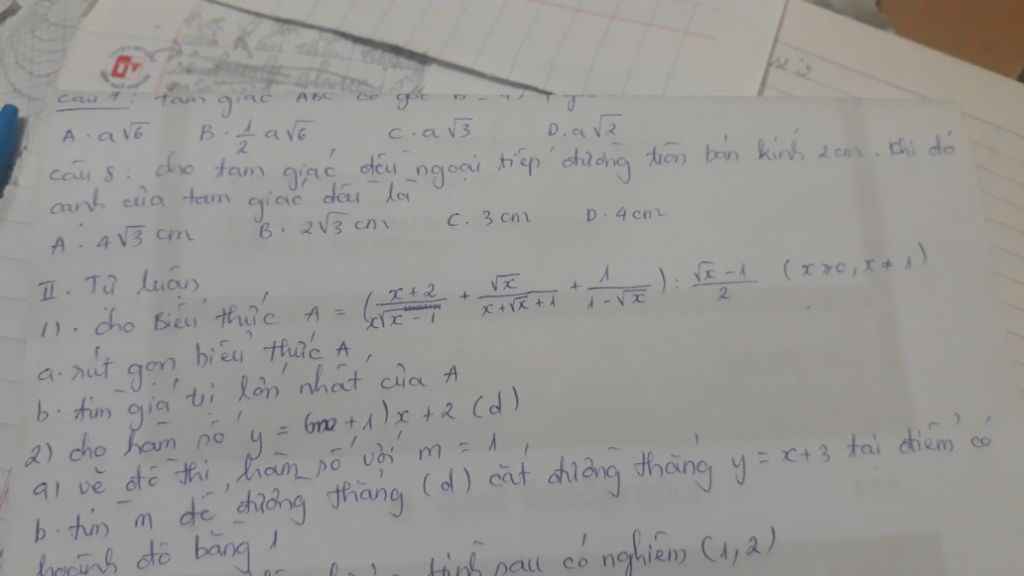 Câu 7: tam giác ABC có góc
A. a√6 B. 1/2 a√6 C. a√3 D. a√2
câu 8: cho tam giác đều ngoại tiếp đường tròn bán kính 2cm. Khi đó
cạnh của tam giác đều là
A. 4√3 cm B. 2√3 cm C. 3 cm D. 4 cm
II. Tự luận
1). cho Biểu thức A = (x+2/x√x-1 + √x/x+√x+1 + 1/1-√x) : √x-1/2 (x≥0, x≠1)
a. rút gọn biểu thức A
b. tìm giá trị lớn nhất của A
2) cho hàm số y = (m+1)x+2 (d)
a) vẽ đồ thị hàm số với m = 1
b. tìm m để đường thẳng (d) cắt đường thẳng y = x+3 tại điểm có
hoành độ bằng 1
sau có nghiệm (1,2)